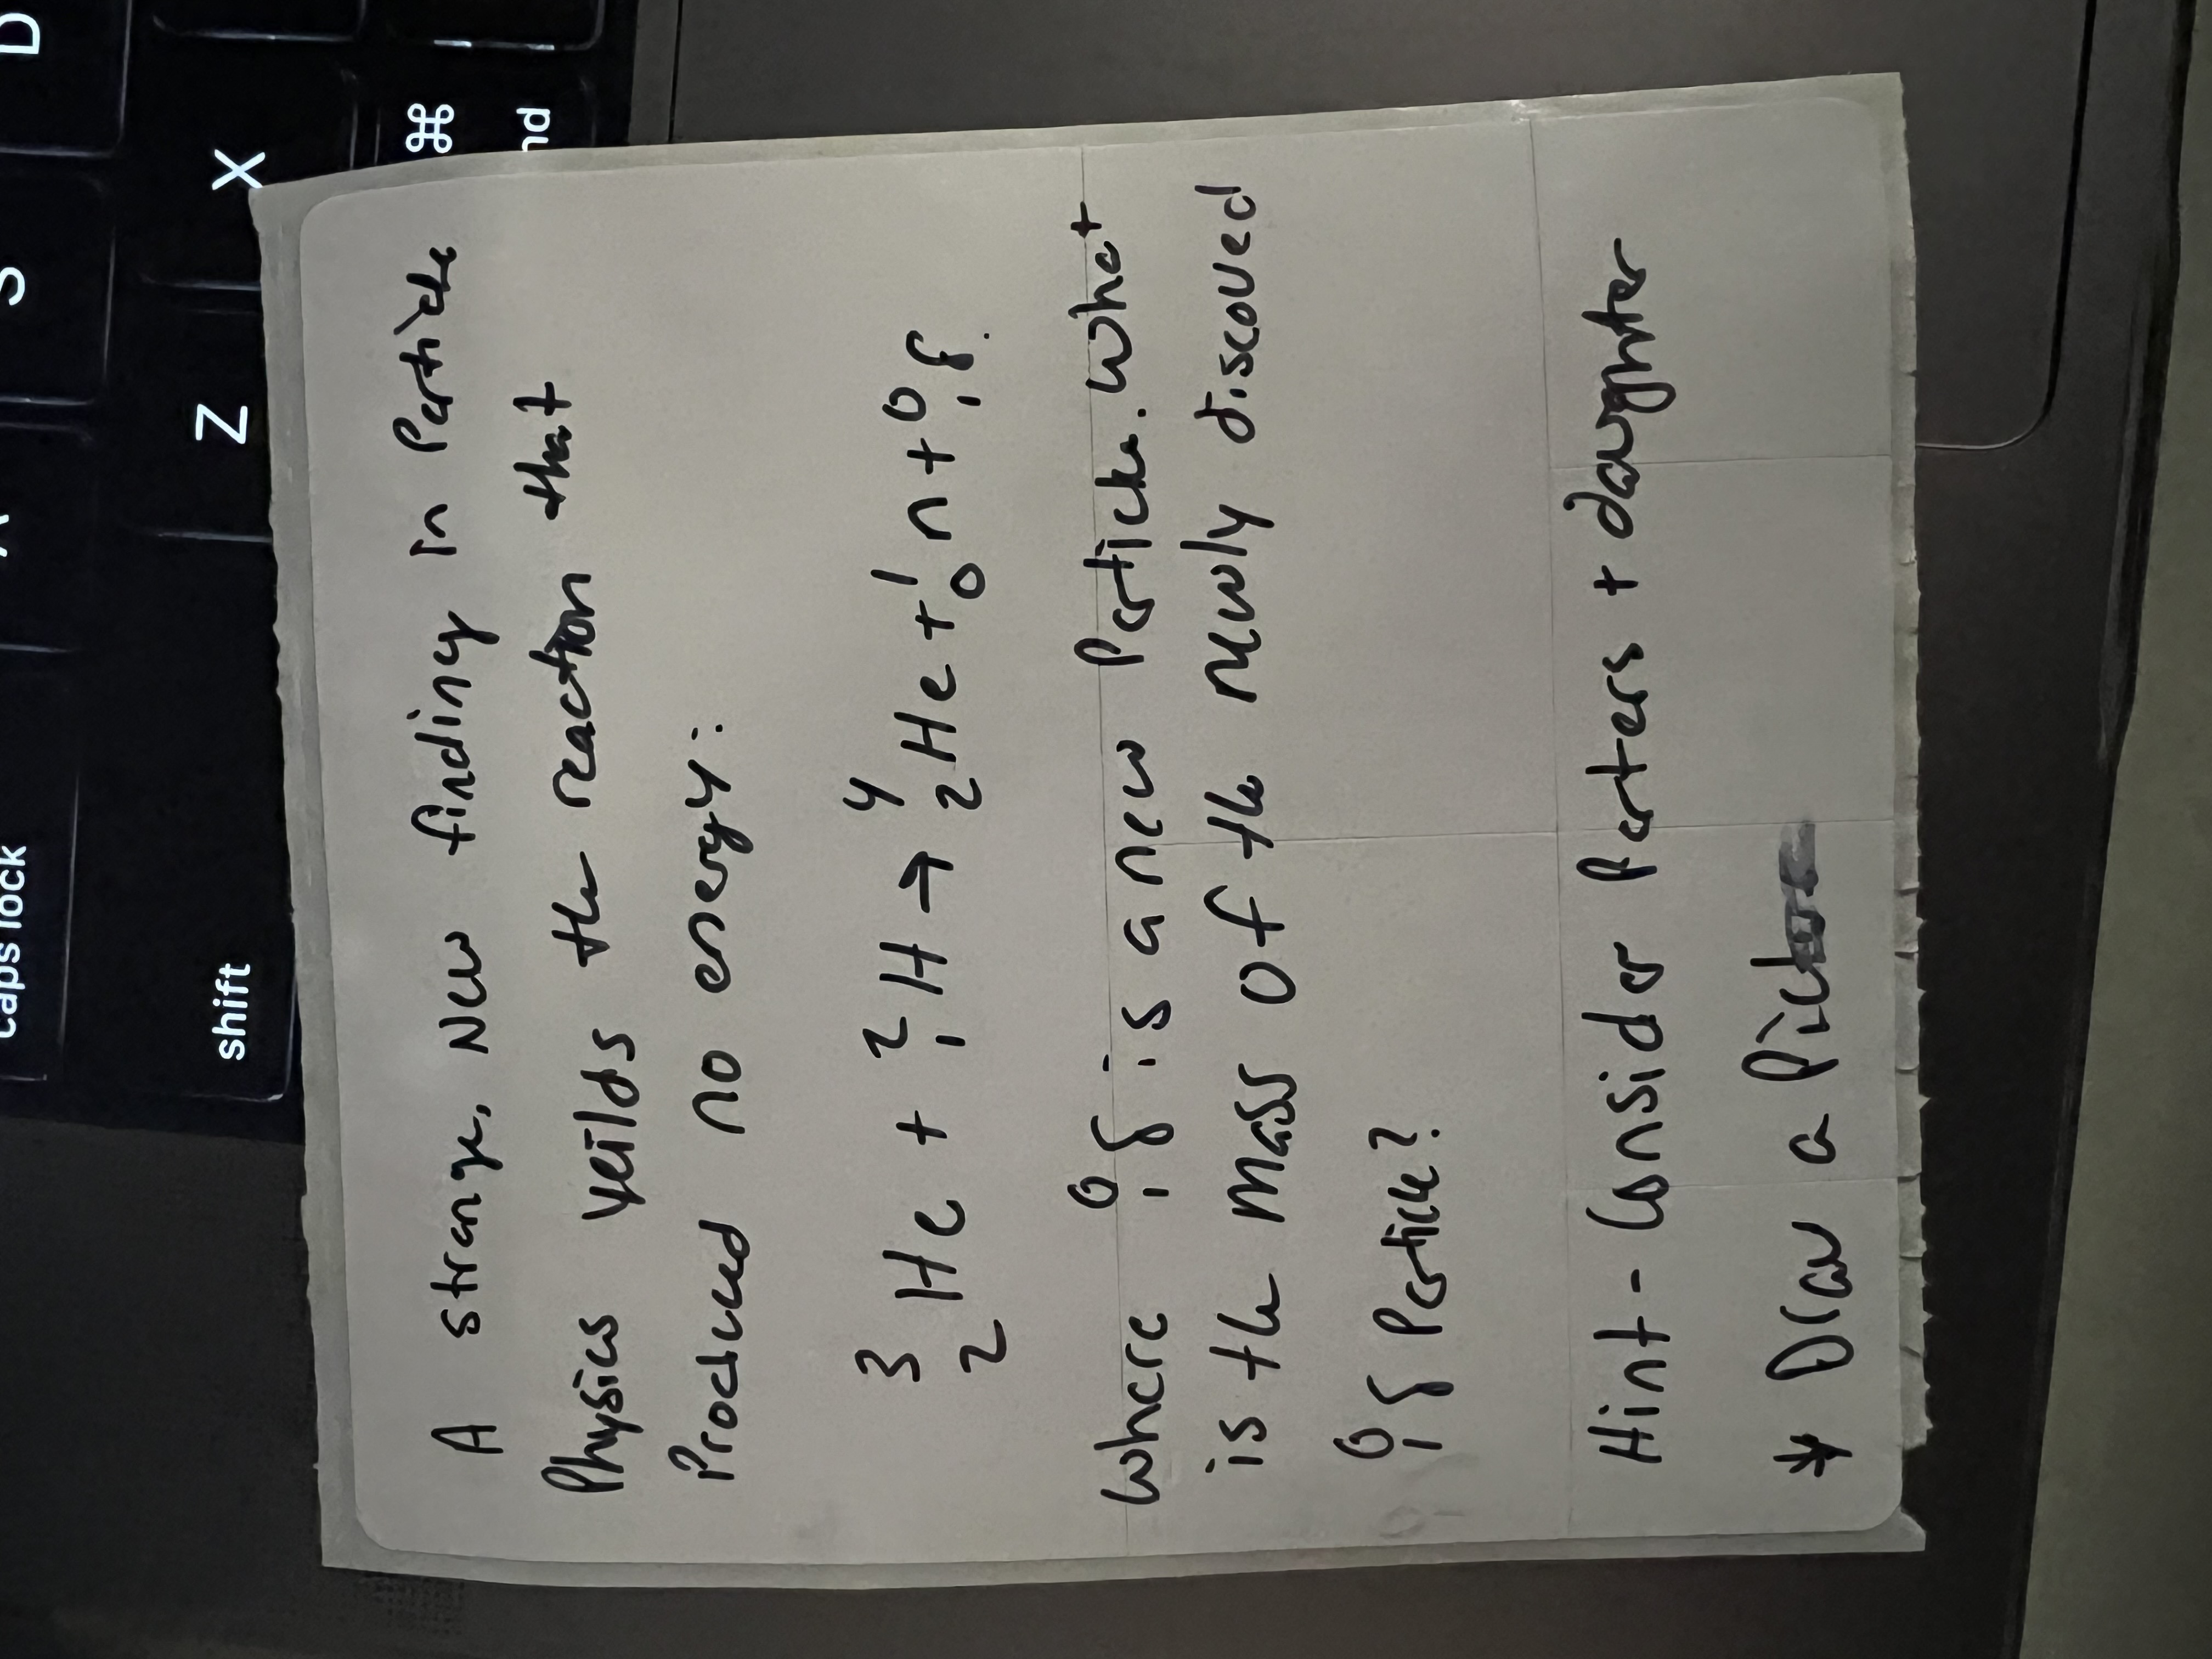 A strange, New finding in Particle
Physics yeilds the reaction that
Produced no energy:
³₂He + ²₁H → ⁴₂He + ¹₀n + ⁰₁ξ.
where ⁰₁ξ is a new Particle. What
is the mass of the newly discoved
⁰₁ξ Particle?
Hint - Consider Parters + daughter
* Draw a Picture
D
S
X
Z
⌘
caps lock
shift